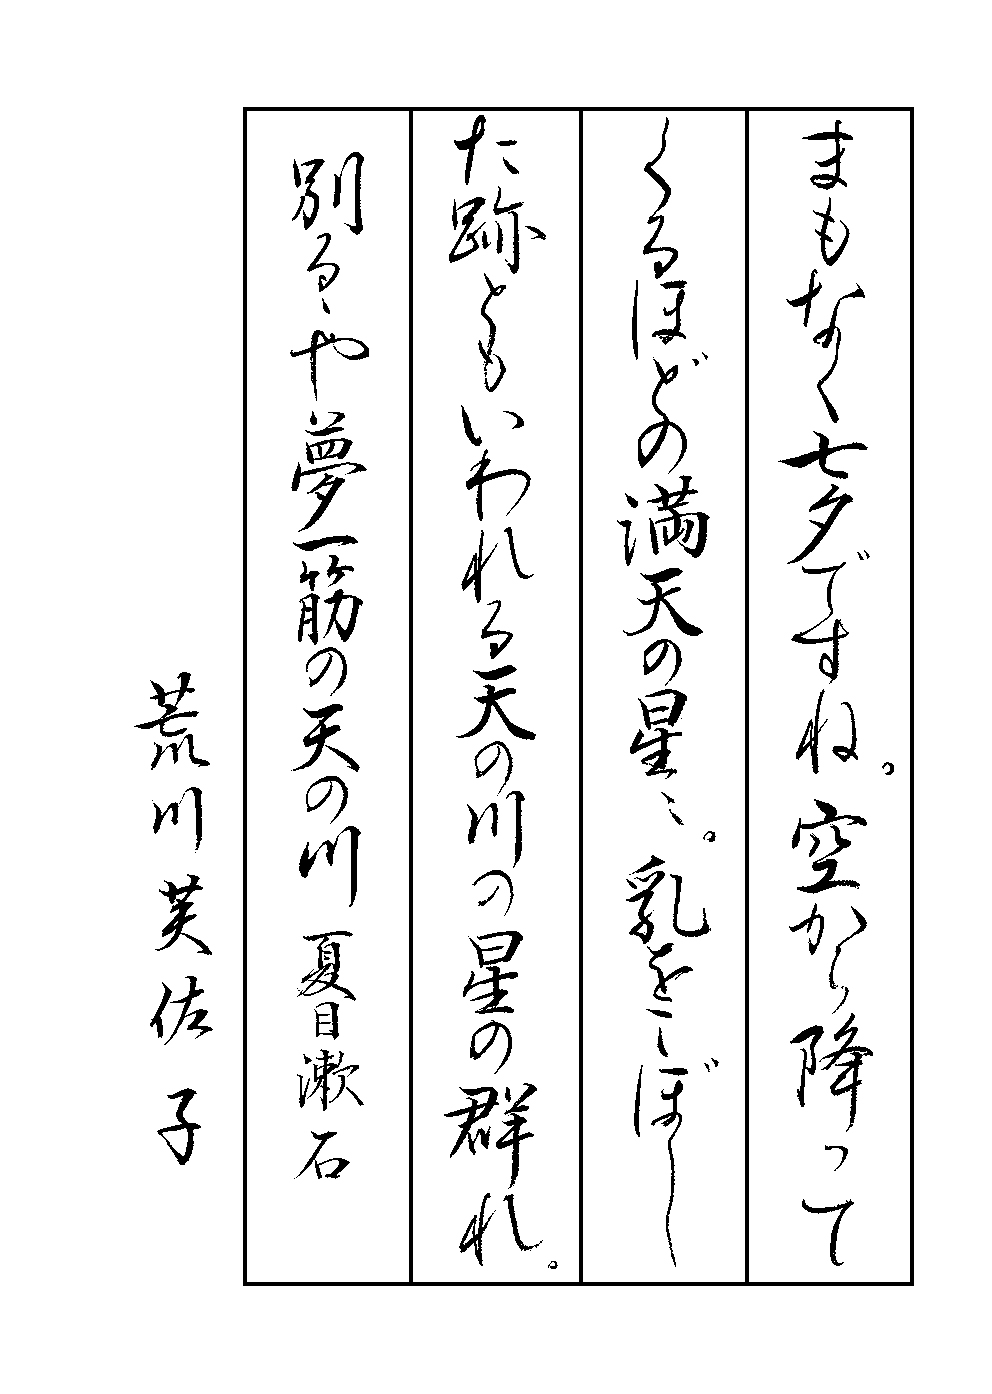 まもなく七夕ですね。空から降って
くるほどの満天の星々。乳をこぼし
た跡ともいわれる天の川の星の群れ。
別るゝや夢一筋の天の川 夏目漱石
荒川芙佐子